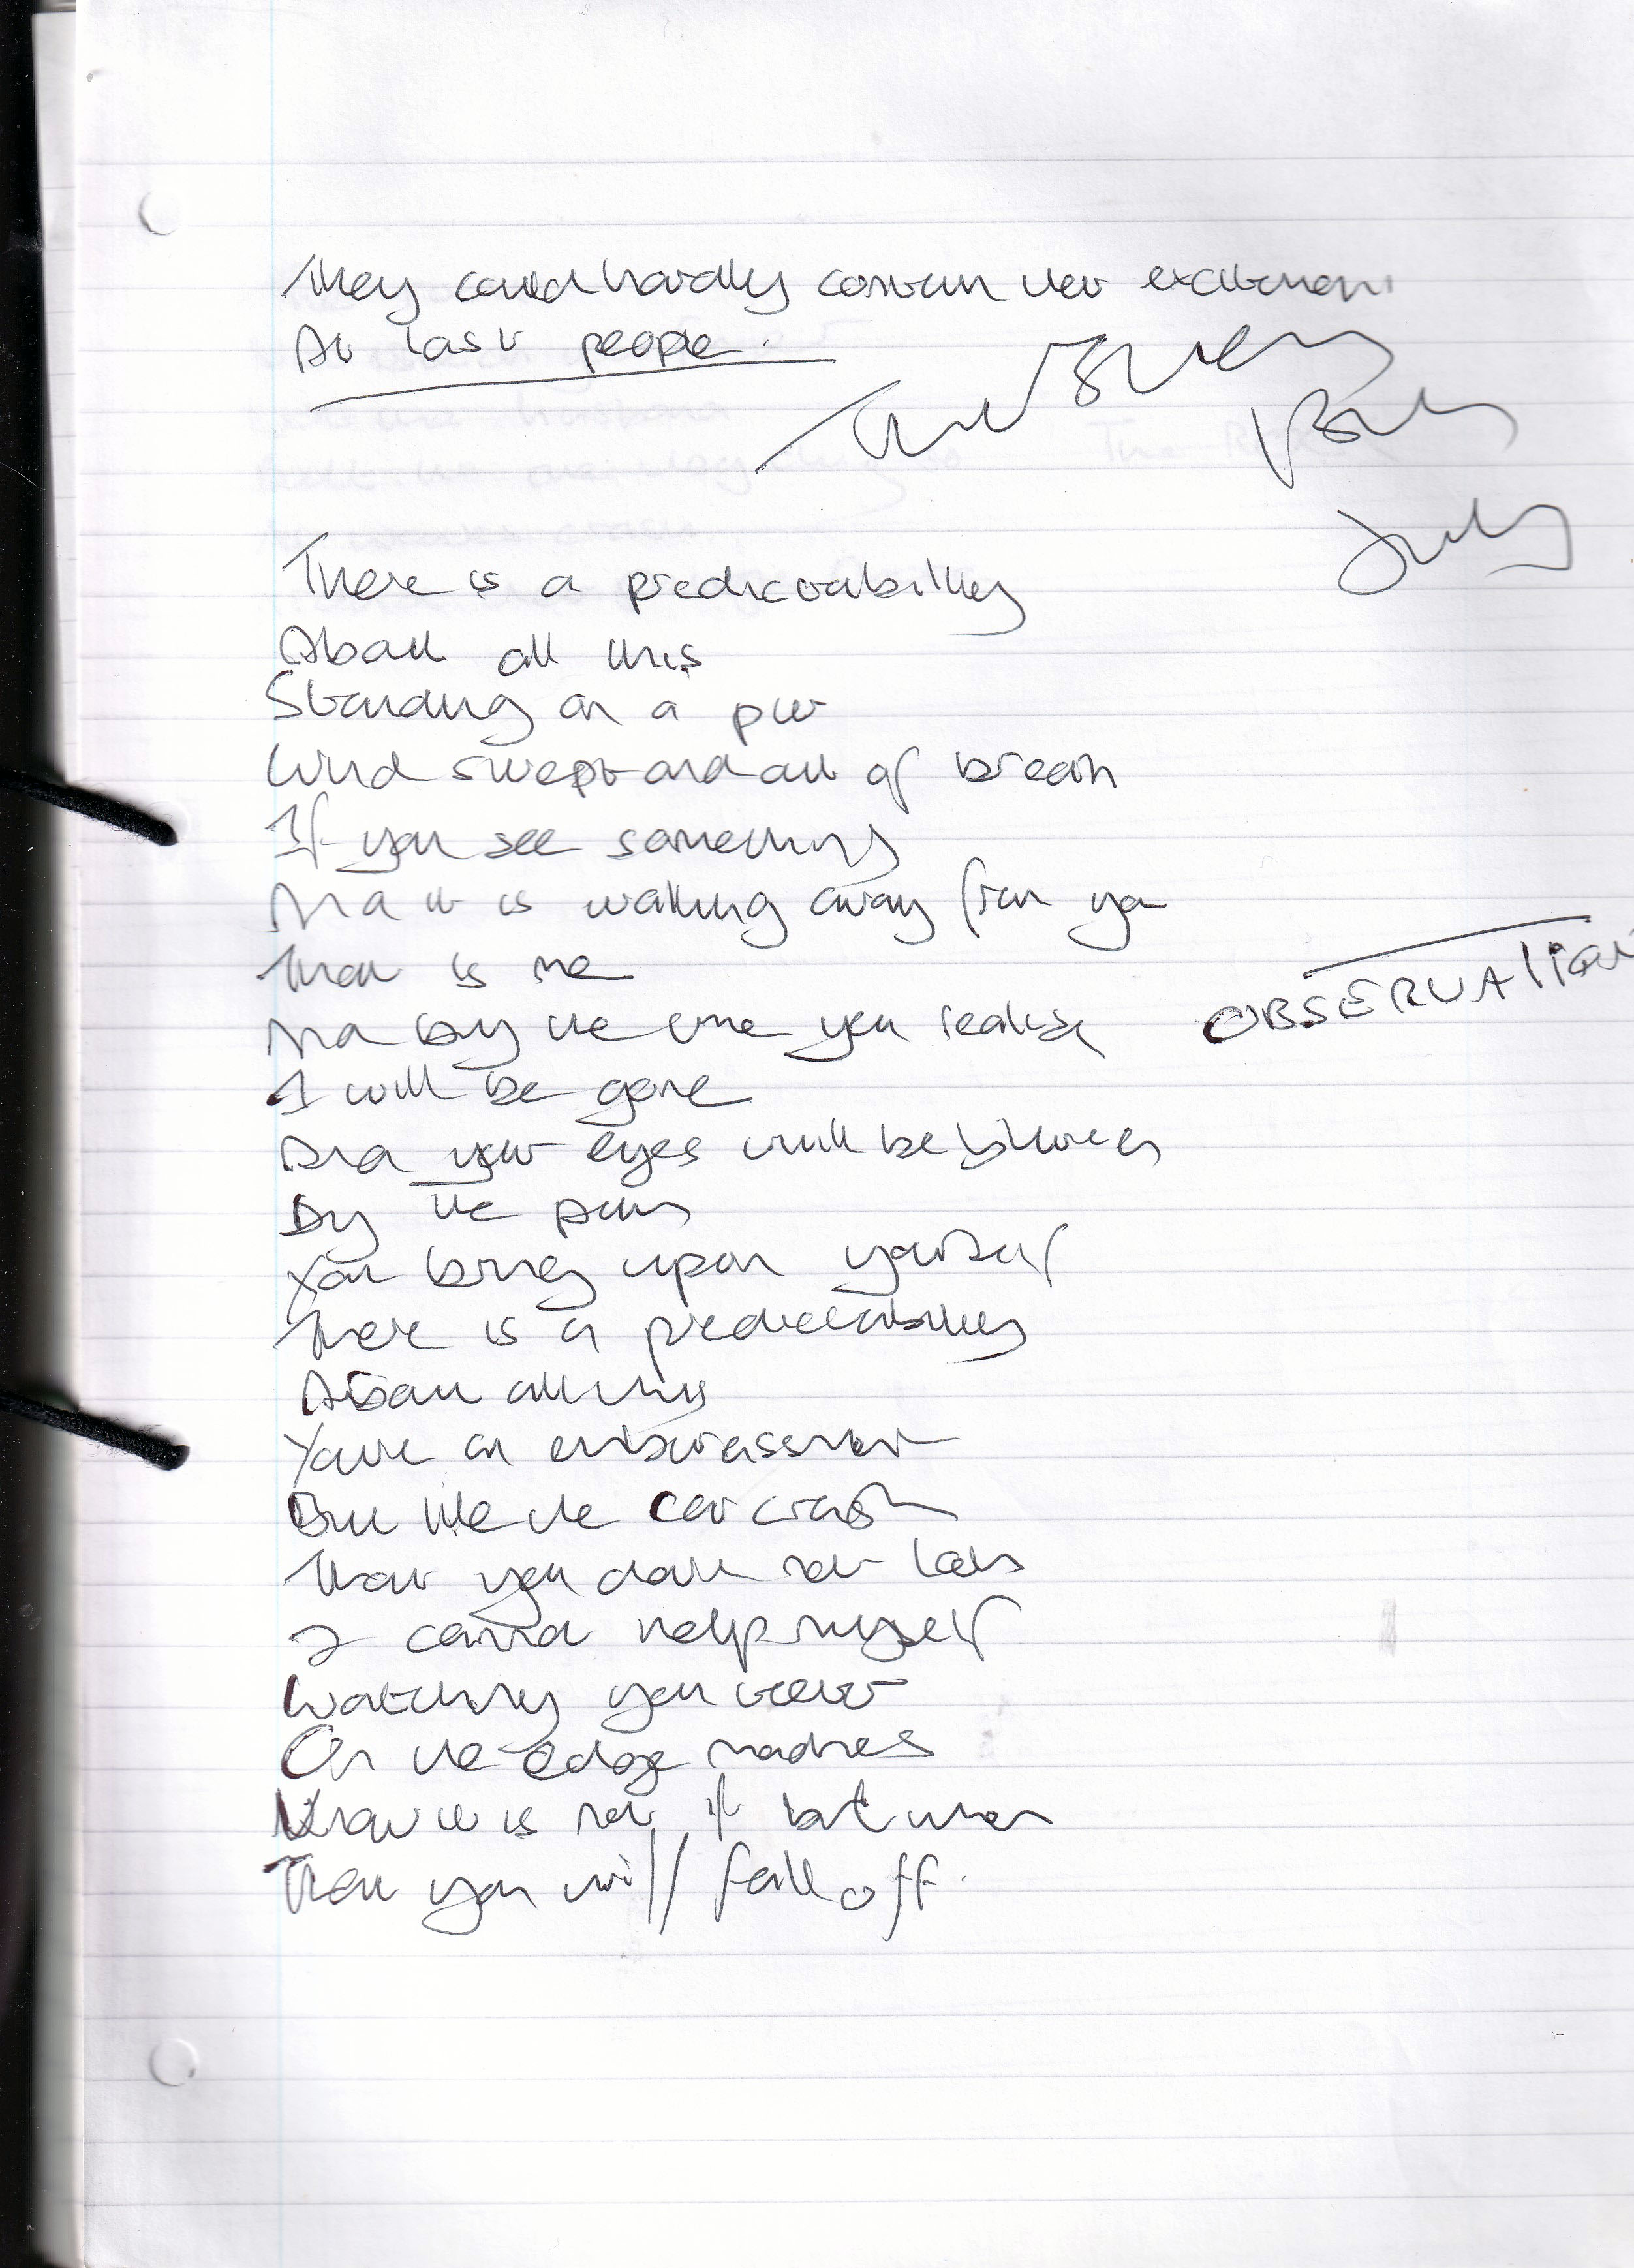 They could hardly contain their excitement
At last people.
July
There is a predictability
About all this
Standing on a pier
Wind swept and out of breath
If you see something
And it is walking away from you
That is me
And by the time you realise
I will be gone
OBSERVATION
And your eyes will be
By the
You bring upon yourself
There is a predictability
About all this
You're an embarrassment
But like the car crash
That you dare not
I cannot help myself
Watching you teeter
On the edge madness
Know it is not if but when
That you will fall off.